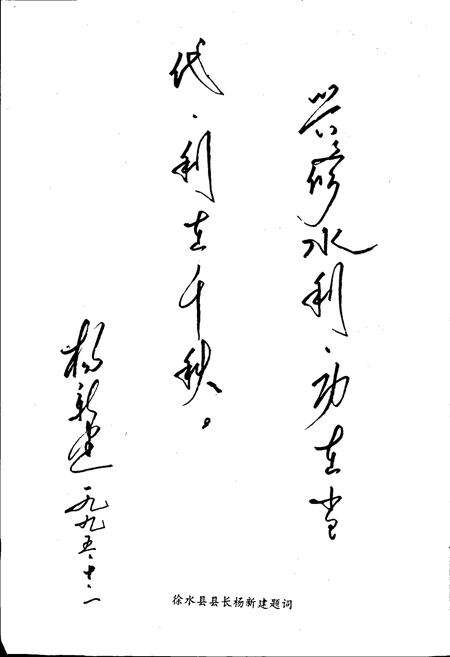 兴修水利·功在当
代·利在千秋。
杨新建 一九九五·十·一
徐水县县长杨新建题词